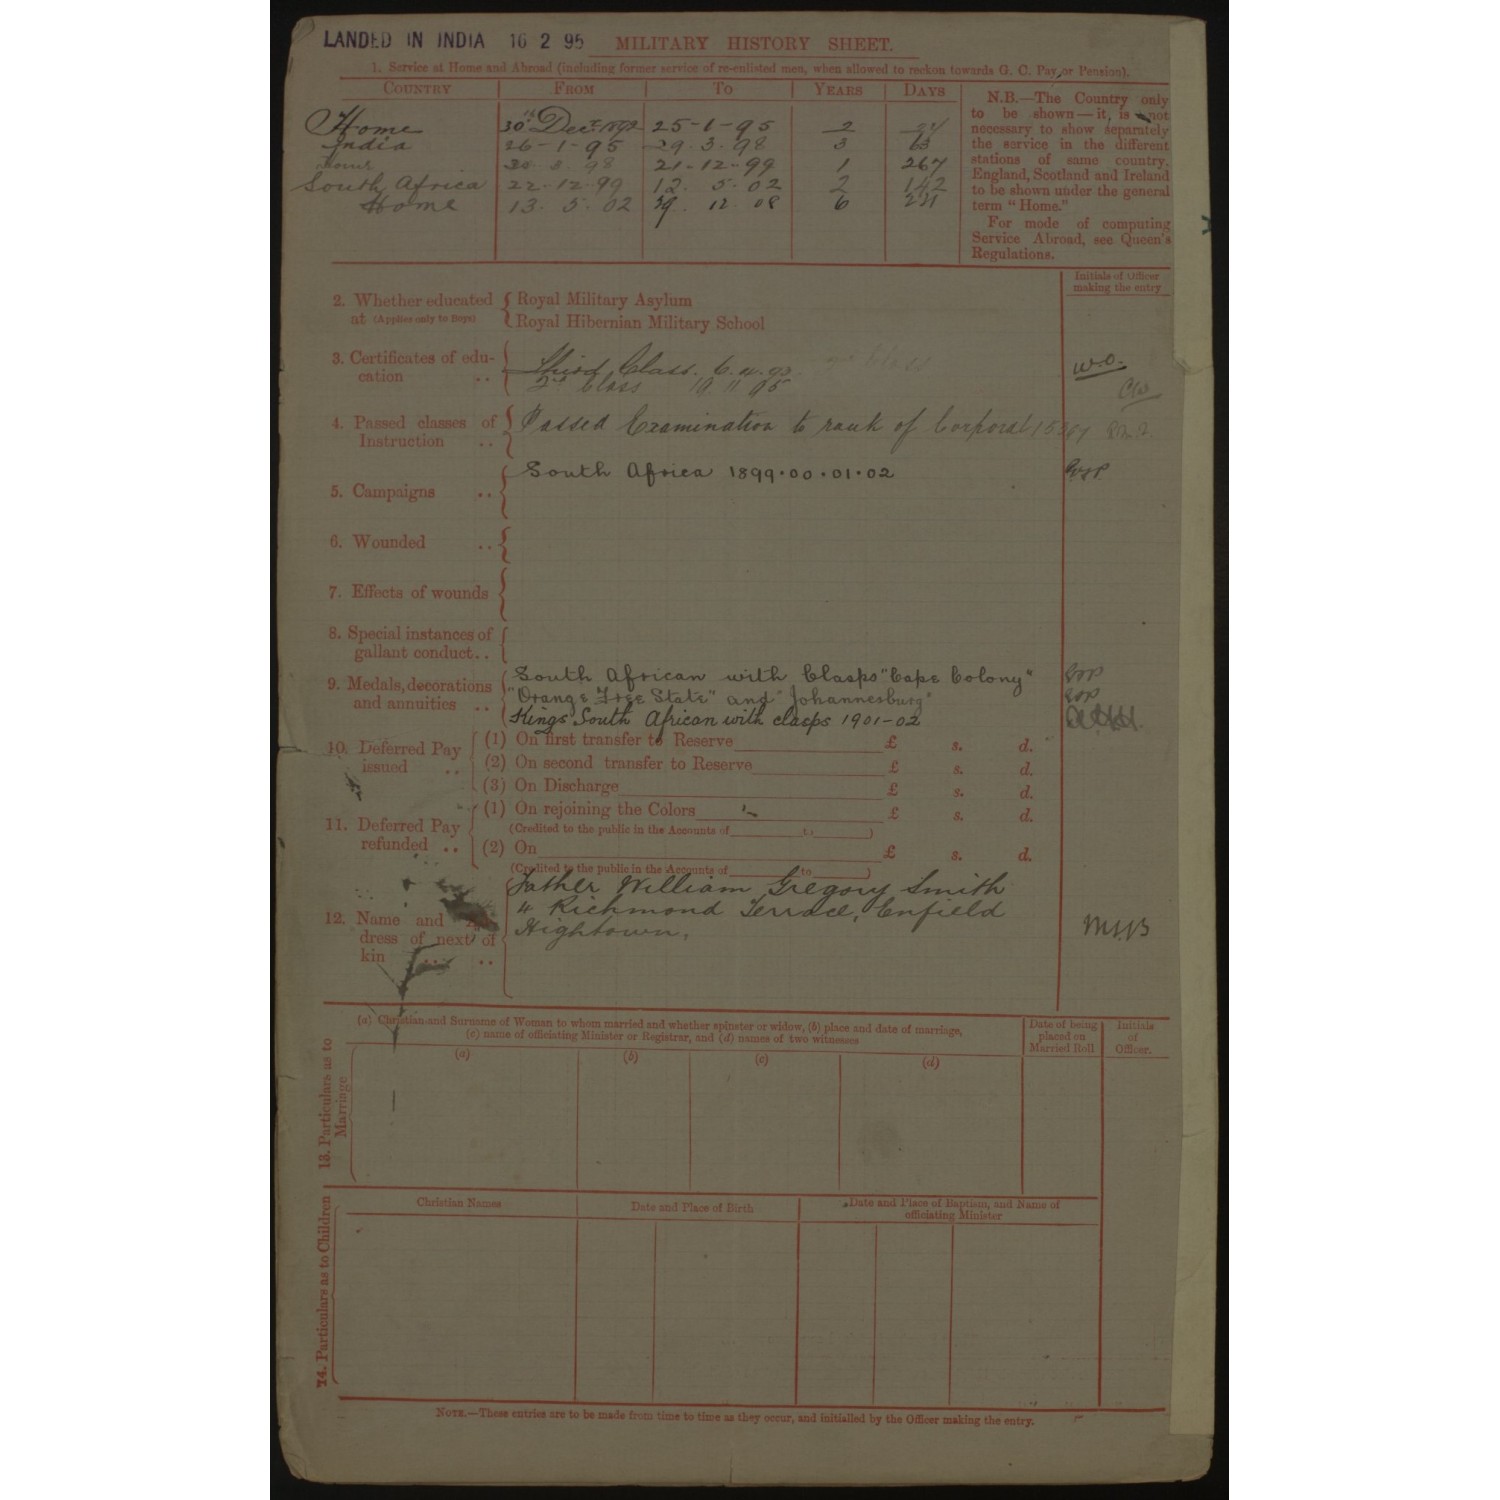 LANDED IN INDIA 16 2 95 MILITARY HISTORY SHEET.
1. Service at Home and Abroad (including former service of re-enlisted men, when allowed to reckon towards G. C. Pay or Pension).
COUNTRY FROM TO YEARS DAYS
Home 30th Decr 1892 25-1-95 2
India 26-1-95 29.3.98 3 63
Home 30.3.98 21-12-99 1 267
South Africa 22-12-99 12. 5. 02 2 142
Home 13. 5. 02 12 08 6
N.B.—The Country only
to be shown—it is not
necessary to show separately
the service in the different
stations of same country.
England, Scotland and Ireland
to be shown under the general
term "Home."
For mode of computing
Service Abroad, see Queen's
Regulations.
Initials of Officer
making the entry
2. Whether educated at (Applies only to Boys)
Royal Military Asylum
Royal Hibernian Military School
3. Certificates of edu-
cation ..
Third Class. 6.4.93
2nd Class 19 11 95
4. Passed classes of
Instruction ..
Passed Examination to rank of Corporal
5. Campaigns ..
South Africa 1899.00.01.02
6. Wounded ..
7. Effects of wounds
8. Special instances of
gallant conduct..
9. Medals, decorations
and annuities ..
South African with Clasps "Cape Colony"
"Orange Free State" and "Johannesburg"
Kings South African with clasps 1901-02
10. Deferred Pay
issued ..
(1) On first transfer to Reserve £ s. d.
(2) On second transfer to Reserve £ s. d.
(3) On Discharge £ s. d.
11. Deferred Pay
refunded ..
(1) On rejoining the Colors £ s. d.
(Credited to the public in the Accounts of to )
(2) On £ s. d.
(Credited to the public in the Accounts of to )
12. Name and
dress of next of
kin .. ..
Father William Gregory Smith
4 Richmond Terrace, Enfield
Hightown,
13. Particulars as to
Marriage
(a) Christian and Surname of Woman to whom married and whether spinster or widow, (b) place and date of marriage,
(c) name of officiating Minister or Registrar, and (d) names of two witnesses
Date of being
placed on
Married Roll
Initials
of
Officer.
(a) (b) (c) (d)
14. Particulars as to Children
Christian Names
Date and Place of Birth
Date and Place of Baptism, and Name of
officiating Minister
NOTE.—These entries are to be made from time to time as they occur, and initialled by the Officer making the entry.